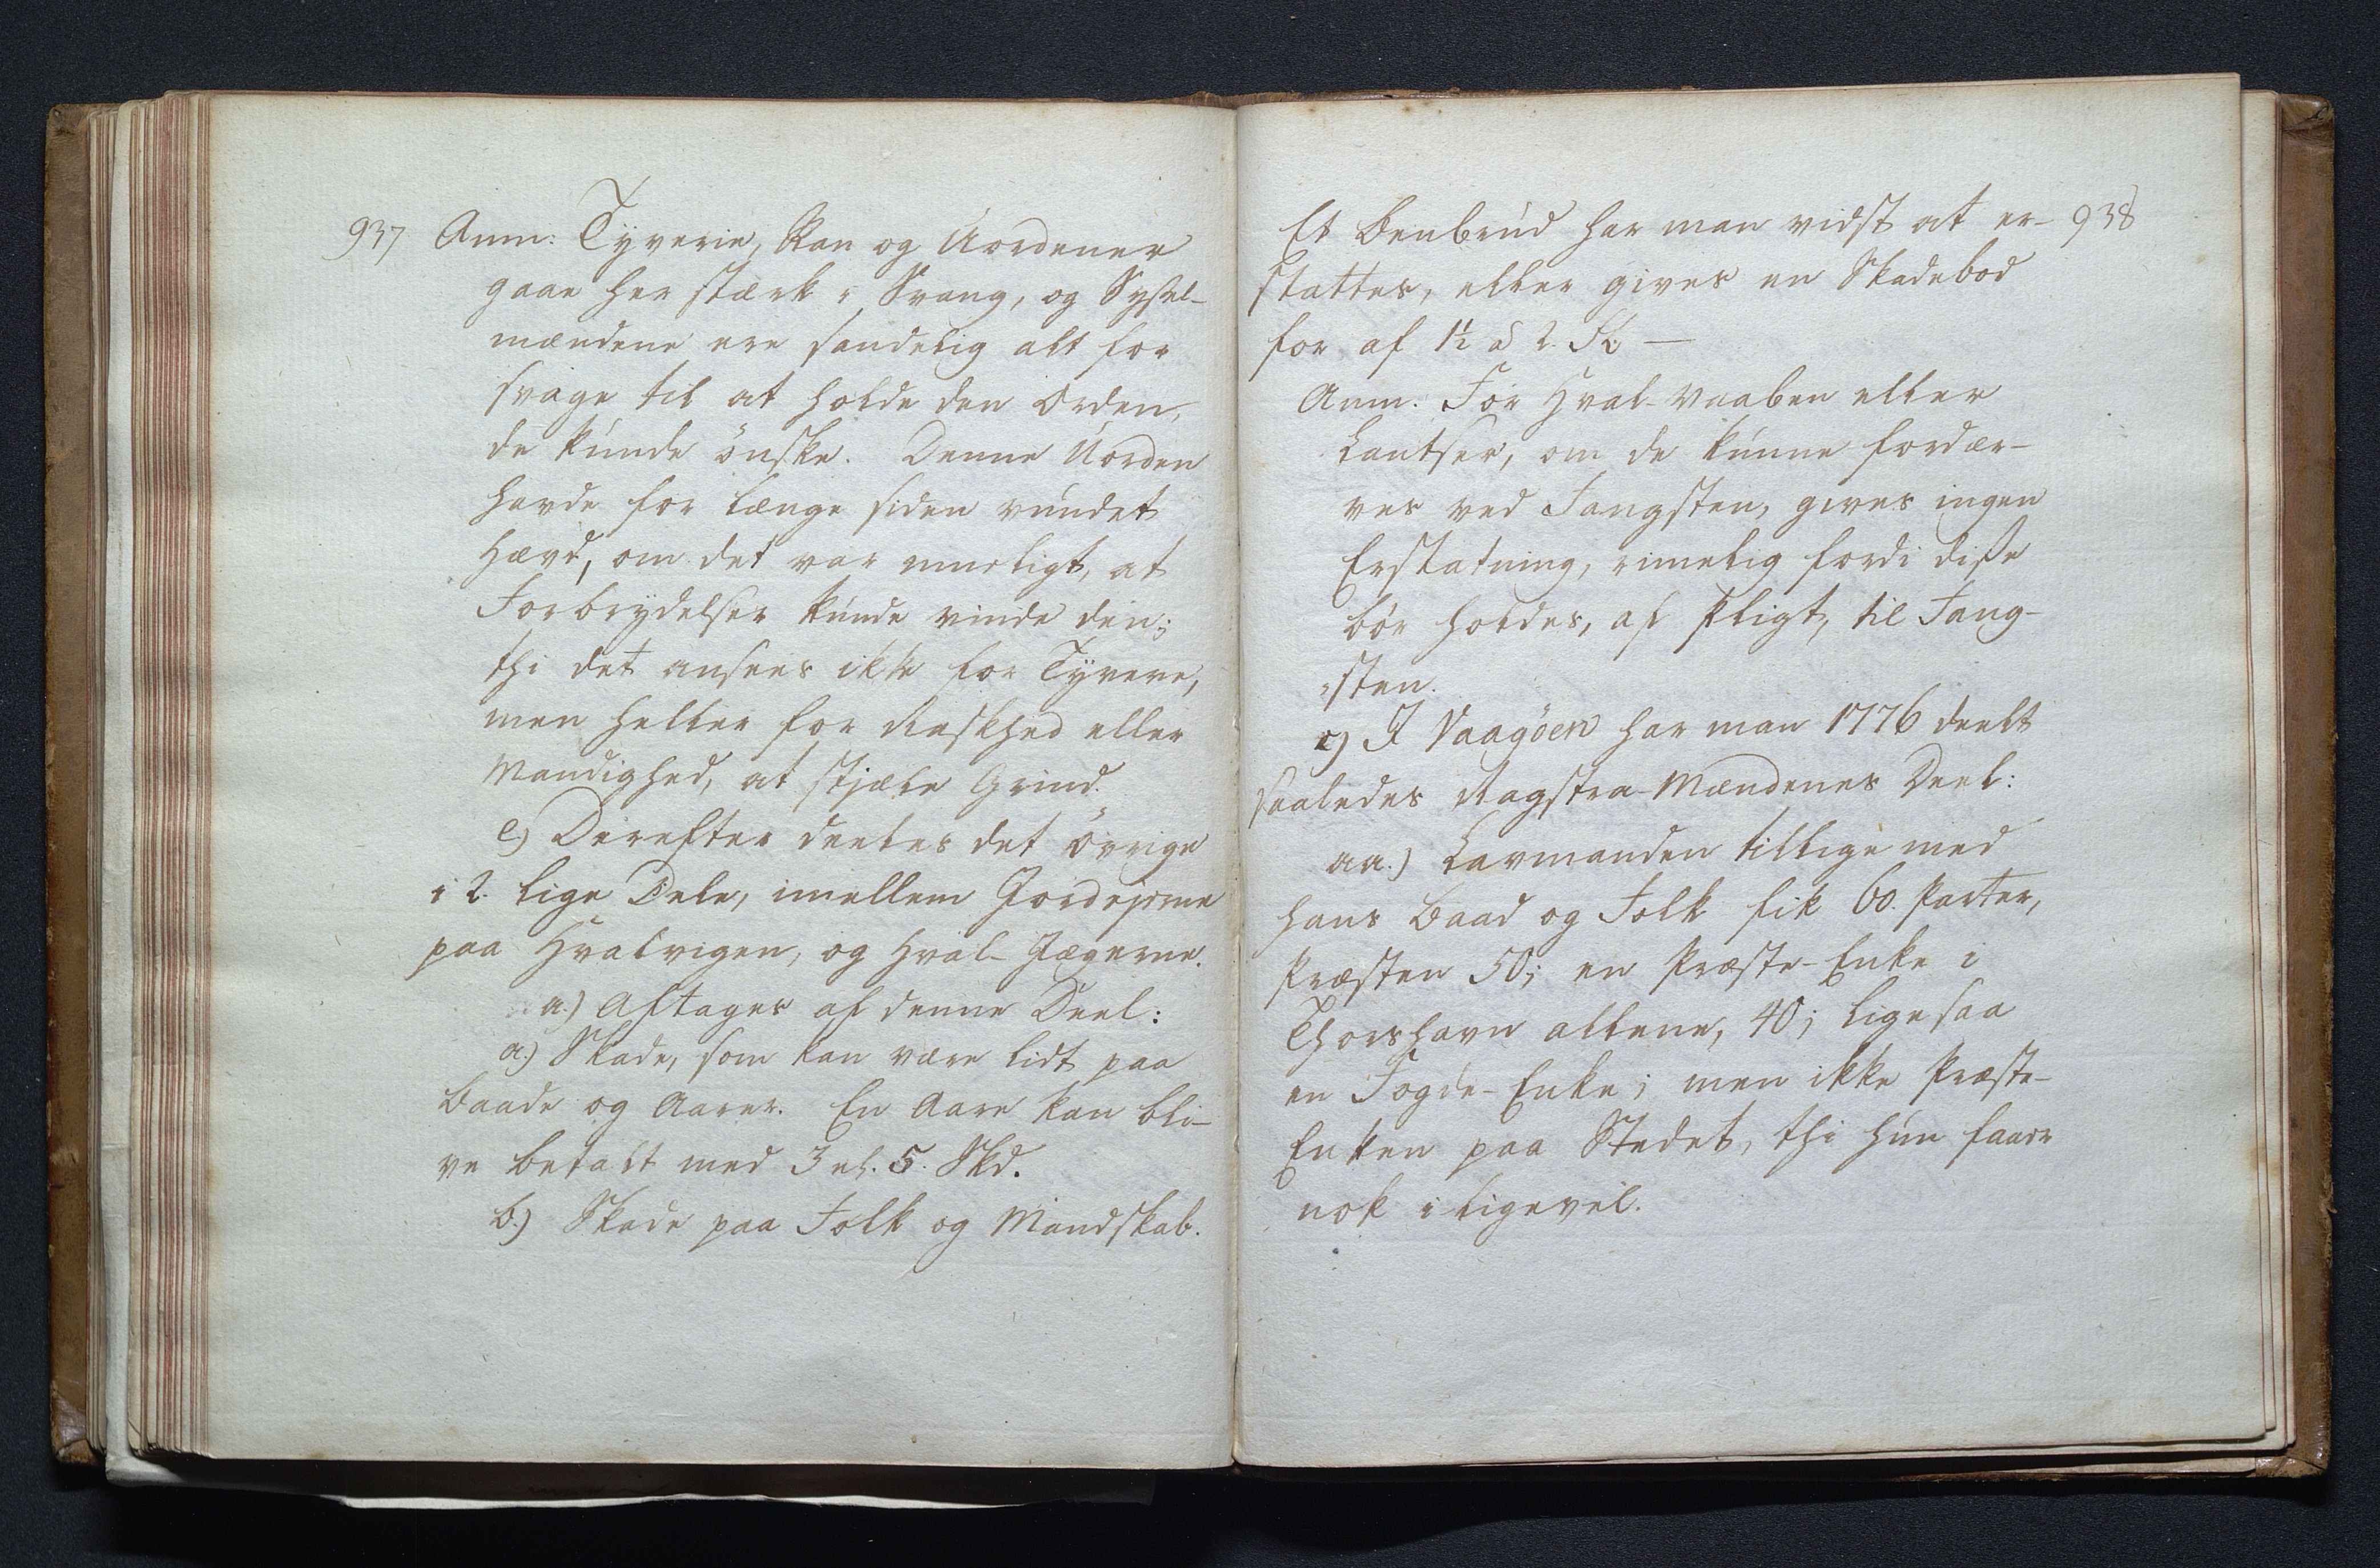 937 Anm: Tyverie, Ran og Uordener
gaae her stærk i Svang, og Syssel-
mændene ere sandelig alt for
svage til at holde den Orden,
de kunde önske. Denne Uorden
havde for længe siden vundet
Hævd, om det var mueligt, at
Forbrydelser kunde vinde den;
thi det ansees ikke for Tyverie,
men heller for Raskhed eller
Mandighed, at stjæle Grind.
e.) Derefter deeles det övrige
i 2. lige Dele, imellem Jordejerne
paa Hvalvigen, og Hval-Jægerne.
a.) Aftages af denne Deel:
a.) Skade, som kan være lidt paa
Baade og Aarer. En Aare kan bli-
ve betalt med 3 el. 5. Skd.
b.) Skade paa Folk og Mandskab.
Et Benbrud har man vidst at er- 938
stattes, eller gives en Skadebod
for af 1½ à 2 Sk. —
Anm. For Hval-Vaaben eller
Lantser, om de kunne fordær-
ves ved Fangsten, gives ingen
Erstatning, rimelig fordi disse
bör holdes, af Pligt, til Fang-
sten.
c) I Vaagöen har man 1776 deelt
saaledes Ragstra-Mændenes Deel:
aa.) Lavmanden tillige med
hans Baad og Folk fik 60. Parter,
Præsten 50; en Præste-Enke i
Thorshavn allene, 40; ligesaa
en Fogde-Enke; men ikke Præste-
Enken paa Stedet, thi hun faaer
nok i ligevel.